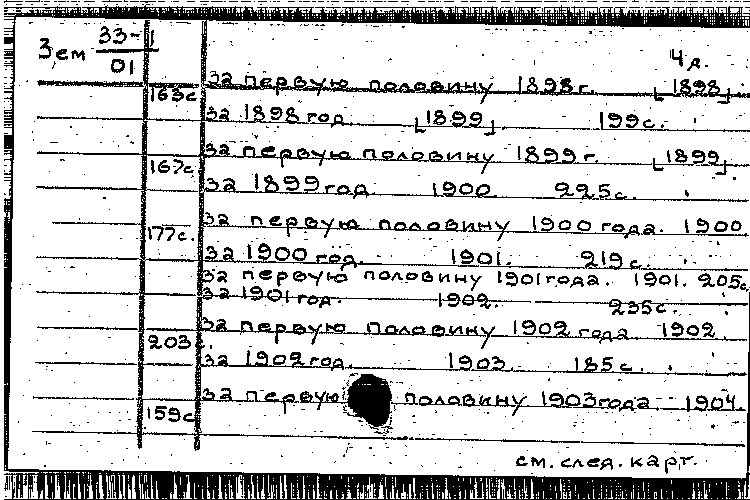 Зем 33-1
01
4 д.
за первую половину 1898 г. [1898]
163с
за 1898 год [1899]. 199с.
за первую половину 1899 г. [1899]
167с
за 1899 год 1900 225с.
за первую половину 1900 года. 1900
177с.
за 1900 год. 1901. 219с.
за первую половину 1901 года. 1901. 205с.
за 1901 год. 1902. 235с.
за первую половину 1902 года 1902
203с.
за 1902 год. 1903. 185с.
за первую половину 1903 года. 1904.
159с
см. след. карт.